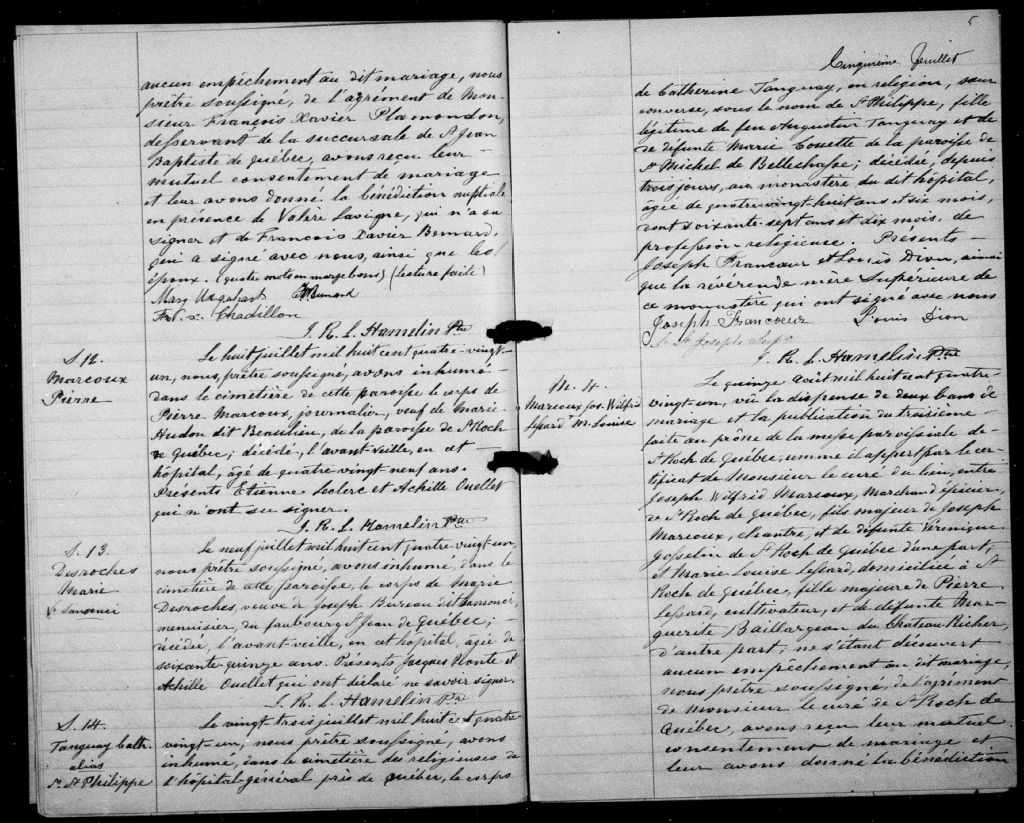 aucun empêchement au dit mariage, nous
prêtre soussigné, de l'agrément de Mon-
sieur François Xavier Plamondon,
desservant de la succursale de St Jean
Baptiste de Québec, avons reçu leur
mutuel consentement de mariage
et leur avons donné la bénédiction nuptiale
en présence de Valère Lavigne, qui n'a su
signer et de François Xavier Bernard,
qui a signé avec nous, ainsi que les
époux. (quatre mots en marge bons) (lecture faite)
Mary Urquhart
Chadillon
J. R. L. Hamelin Ptre
S. 12.
Marcoux
Pierre
Le huit juillet mil huit cent quatre-vingt-
un, nous, prêtre soussigné, avons inhumé
dans le cimetière de cette paroisse le corps de
Pierre Marcoux, journalier, veuf de Marie
Hudon dit Beaulieu, de la paroisse de St Roch
de Québec; décédé, l'avant-veille, en cet
hôpital, âgé de quatre-vingt-neuf ans.
Présents Etienne Leclerc et Achille Ouellet
qui n'ont su signer.
J. R. L. Hamelin Ptre
S. 13.
Desroches
Marie
Ve Sansouci
Le neuf juillet mil huit cent quatre-vingt-un,
nous prêtre soussigné, avons inhumé, dans le
cimetière de cette paroisse, le corps de Marie
Desroches, veuve de Joseph Bureau dit Sansouci,
menuisier, du faubourg St Jean de Québec;
décédée, l'avant-veille, en cet hôpital, âgée de
soixante-quinze ans. Présents Jacques Plante et
Achille Ouellet qui ont déclaré ne savoir signer.
J. R. L. Hamelin Ptre
S. 14.
Tanguay Cath.
alias
Sr. St Philippe
Le vingt trois juillet mil huit cent quatre
vingt-un, nous prêtre soussigné, avons
inhumé, dans le cimetière des religieuses de
l'hôpital-général près de Québec, le corps
5
Cinquième feuillet
de Catherine Tanguay, en religion, sœur
converse, sous le nom de St Philippe, fille
légitime de feu Augustin Tanguay et de
de défunte Marie Couette de la paroisse de
St Michel de Bellechasse; décédée, depuis
trois jours, au monastère du dit hôpital,
âgée de quatre-vingt-huit ans et six mois,
dont soixante-sept ans et dix mois de
profession religieuse. Présents
Joseph Francœur et Louis Dion, ainsi
que la révérende mère Supérieure de
ce monastère qui ont signé avec nous
Joseph Francœur Louis Dion
St Joseph Supre
J. R. L. Hamelin Ptre
M. 4.
Marcoux Jos. Wilfrid
Lessard M. Louise
Le quinze Août mil huit cent quatre-
vingt-un, vu la dispense de deux bans de
mariage et la publication du troisième
faite au prône de la messe paroissiale de
St Roch de Québec, comme il appert par le cer-
tificat de Monsieur le curé du lieu, entre
Joseph Wilfrid Marcoux, Marchand épicier,
de St Roch de Québec, fils majeur de Joseph
Marcoux, chantre, et de défunte Véronique
Gosselin de St Roch de Québec d'une part;
et Marie Louise Lessard, domiciliée à St
Roch de Québec, fille majeure de Pierre
Lessard, cultivateur, et de défunte Mar-
guerite Baillargeon du Château Richer,
d'autre part; ne s'étant découvert
aucun empêchement au dit mariage,
nous prêtre soussigné, de l'agrément
de Monsieur le curé de St Roch de
Québec, avons reçu leur mutuel
consentement de mariage et
leur avons donné la bénédiction